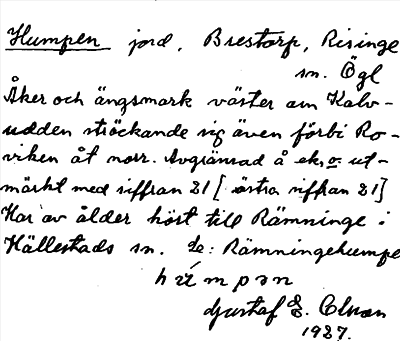 Humpen jord, Brestorp, Risinge
sn. Ögl
Åker och ängsmark väster om Kalv-
udden sträckande sig även förbi Ro-
viken åt norr. Avgränsad å ek. o. ut-
märkt med siffran 21 [östra siffran 21]
Har av ålder hört till Rämninge i
Hällestads sn. de: Rämningehumpe
húmpən
Gustaf E.
1927.